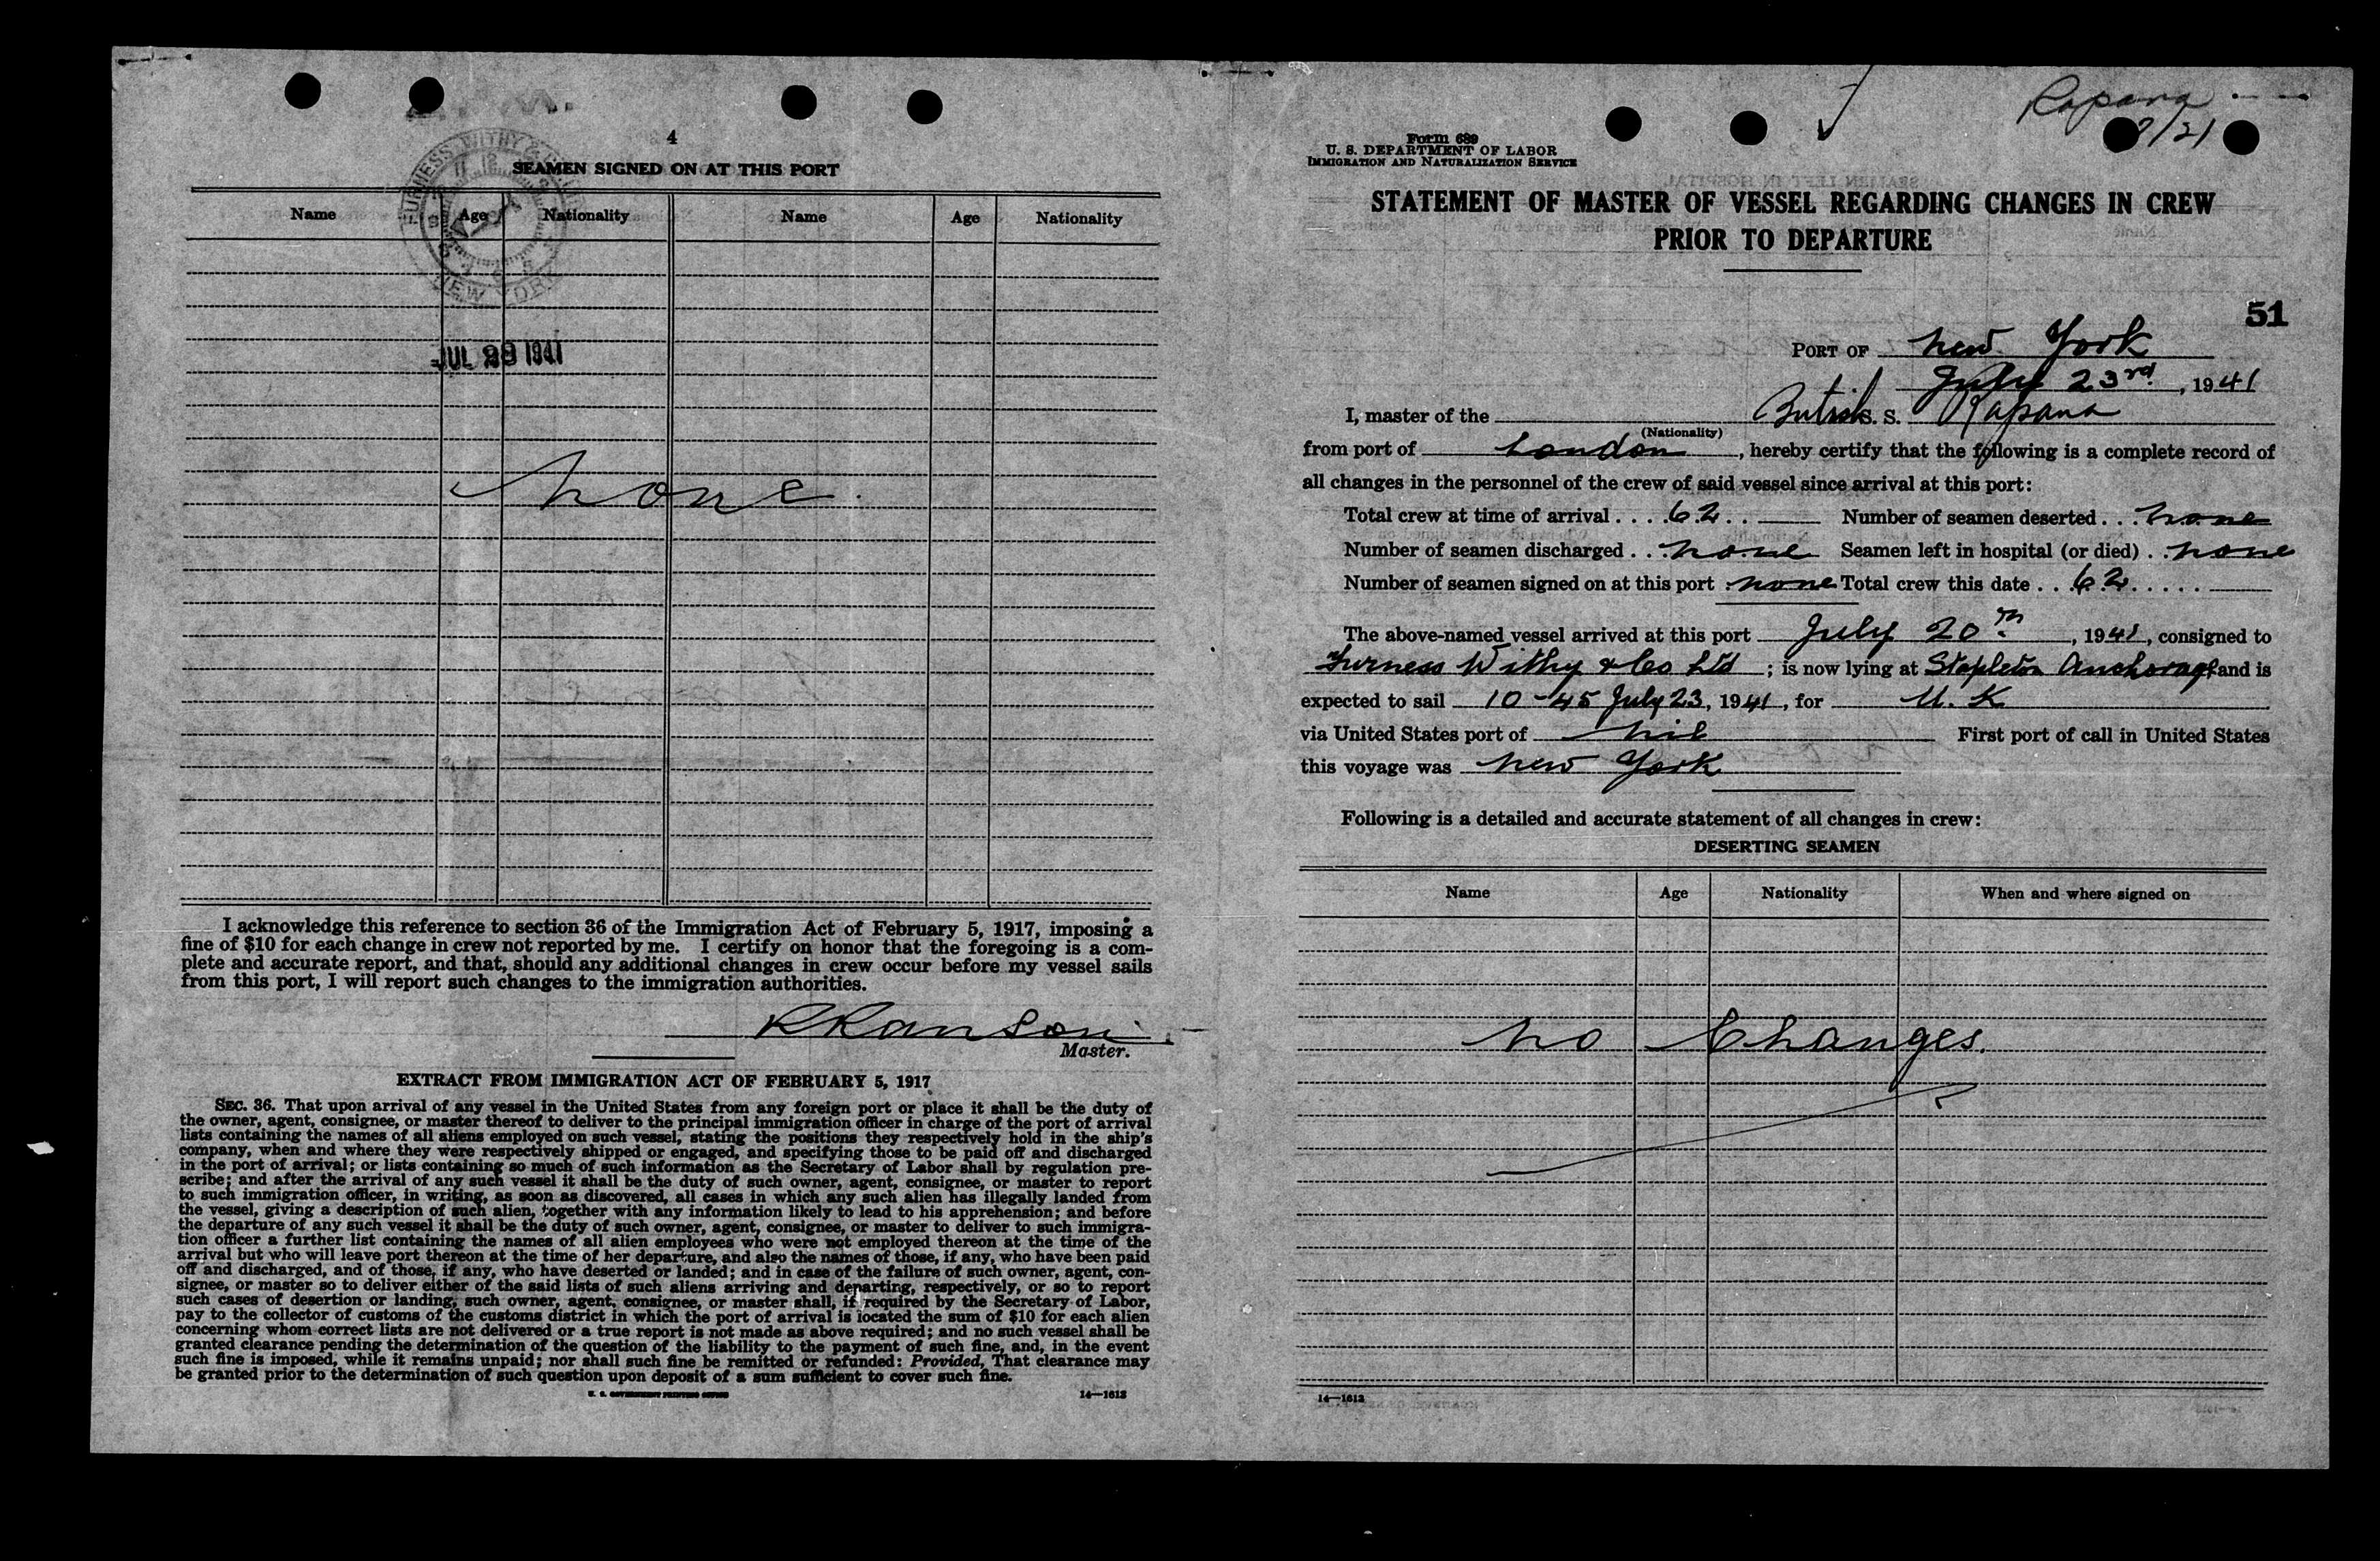 4
FURNESS WITHY & CO. LTD
NEW YORK
SEAMEN SIGNED ON AT THIS PORT
Name Age Nationality Name Age Nationality
JUL 1941
None.
I acknowledge this reference to section 36 of the Immigration Act of February 5, 1917, imposing a
fine of $10 for each change in crew not reported by me. I certify on honor that the foregoing is a com-
plete and accurate report, and that, should any additional changes in crew occur before my vessel sails
from this port, I will report such changes to the immigration authorities.
R Ranson
Master.
EXTRACT FROM IMMIGRATION ACT OF FEBRUARY 5, 1917
SEC. 36. That upon arrival of any vessel in the United States from any foreign port or place it shall be the duty of
the owner, agent, consignee, or master thereof to deliver to the principal immigration officer in charge of the port of arrival
lists containing the names of all aliens employed on such vessel, stating the positions they respectively hold in the ship's
company, when and where they were respectively shipped or engaged, and specifying those to be paid off and discharged
in the port of arrival; or lists containing so much of such information as the Secretary of Labor shall by regulation pre-
scribe; and after the arrival of any such vessel it shall be the duty of such owner, agent, consignee, or master to report
to such immigration officer, in writing, as soon as discovered, all cases in which any such alien has illegally landed from
the vessel, giving a description of such alien, together with any information likely to lead to his apprehension; and before
the departure of any such vessel it shall be the duty of such owner, agent, consignee, or master to deliver to such immigra-
tion officer a further list containing the names of all alien employees who were not employed thereon at the time of the
arrival but who will leave port thereon at the time of her departure, and also the names of those, if any, who have been paid
off and discharged, and of those, if any, who have deserted or landed; and in case of the failure of such owner, agent, con-
signee, or master so to deliver either of the said lists of such aliens arriving and departing, respectively, or so to report
such cases of desertion or landing, such owner, agent, consignee, or master shall, if required by the Secretary of Labor,
pay to the collector of customs of the customs district in which the port of arrival is located the sum of $10 for each alien
concerning whom correct lists are not delivered or a true report is not made as above required; and no such vessel shall be
granted clearance pending the determination of the question of the liability to the payment of such fine, and, in the event
such fine is imposed, while it remains unpaid; nor shall such fine be remitted or refunded: Provided, That clearance may
be granted prior to the determination of such question upon deposit of a sum sufficient to cover such fine.
U. S. GOVERNMENT PRINTING OFFICE 14—1613
Rapana
7/21
Form 689
U. S. DEPARTMENT OF LABOR
IMMIGRATION AND NATURALIZATION SERVICE
STATEMENT OF MASTER OF VESSEL REGARDING CHANGES IN CREW
PRIOR TO DEPARTURE
51
PORT OF New York
July 23rd, 1941
I, master of the British S. S. Rapana
(Nationality)
from port of London, hereby certify that the following is a complete record of
all changes in the personnel of the crew of said vessel since arrival at this port:
Total crew at time of arrival . . . . 62 . . Number of seamen deserted . . . none
Number of seamen discharged . . . none Seamen left in hospital (or died) . . none
Number of seamen signed on at this port . none Total crew this date . . . 62 . . . . .
The above-named vessel arrived at this port July 20th, 1941, consigned to
Furness Withy & Co Ltd; is now lying at Stapleton Anchorage and is
expected to sail 10-45 July 23, 1941, for U. K
via United States port of nil First port of call in United States
this voyage was New York
Following is a detailed and accurate statement of all changes in crew:
DESERTING SEAMEN
Name Age Nationality When and where signed on
No Changes.
14—1613